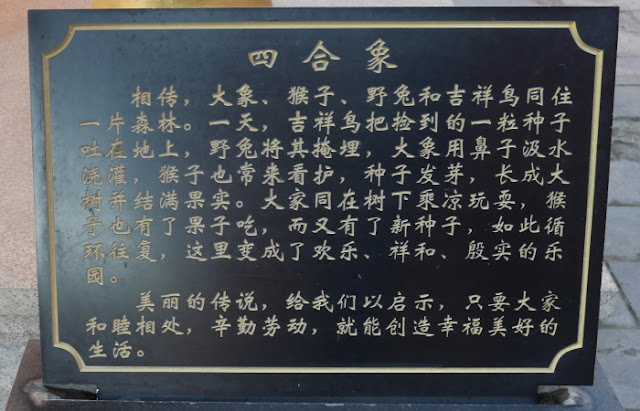 四合象
相传，大象、猴子、野兔和吉祥鸟同住
一片森林。一天，吉祥鸟把捡到的一粒种子
吐在地上，野兔将其掩埋，大象用鼻子汲水
浇灌，猴子也常来看护，种子发芽，长成大
树并结满果实。大家同在树下乘凉玩耍，猴
子也有了果子吃，而又有了新种子，如此循
环往复，这里变成了欢乐、祥和、殷实的乐
园。
美丽的传说，给我们以启示，只要大家
和睦相处，辛勤劳动，就能创造幸福美好的
生活。